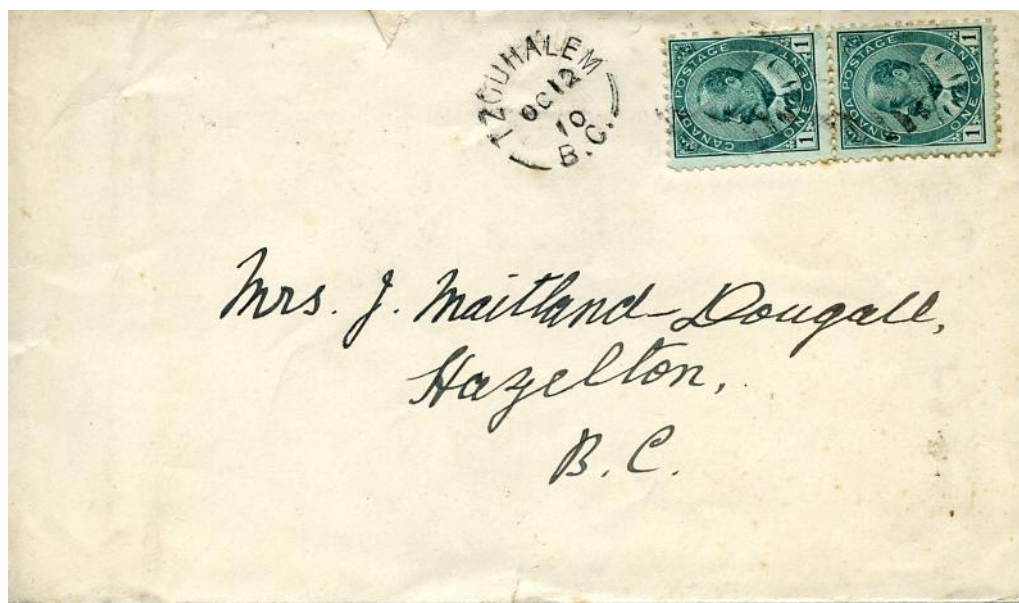 TZOUHALEM
OC 12
10
B.C.
CANADA POSTAGE
ONE CENT
1 1
CANADA POSTAGE
ONE CENT
1 1
Mrs. J. Maitland-Dougall,
Hazelton,
B.C.